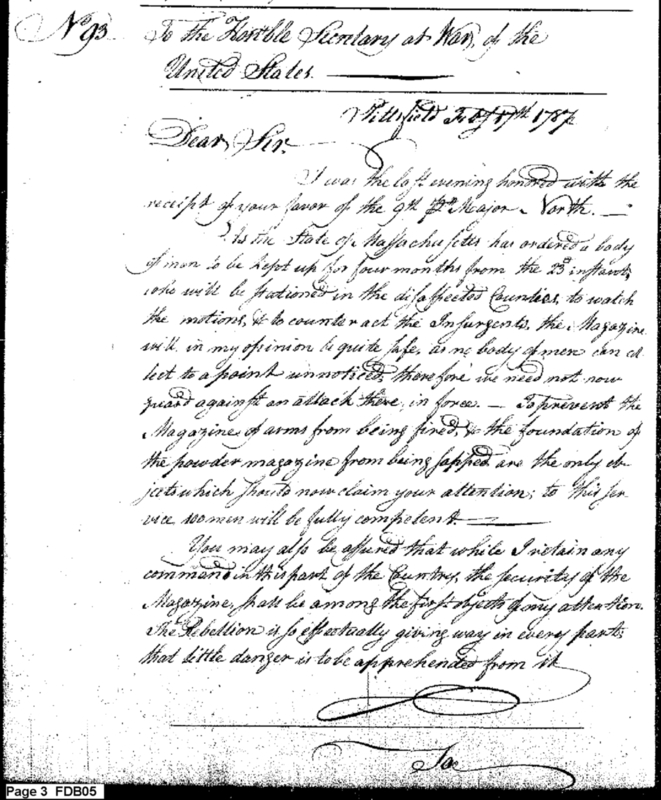 No 93.
To the Honble Secretary at War, of the
United States.
Pittsfield Feby 17th 1787
Dear Sir.
I was the last evening honored with the
receipt of your favor of the 9th pr Major North. —
As the State of Massachusetts has ordered a body
of men to be kept up for four months from the 23d instant,
who will be stationed in the disaffected Counties, to watch
the motions, & to counteract the Insurgents, the Magazine
will, in my opinion be quite safe, as no body of men can col
lect to a point unnoticed, therefore we need not now
guard against an attack there, in force. — To prevent the
Magazine of arms from being fired, & the foundation of
the powder magazine from being sapped are the only ob
jects which should now claim your attention; to this ser
vice men will be fully competent. —
You may also be assured that while I retain any
command in this part of the Country, the security of the
Magazine, shall be among the first objects of my attention.
The Rebellion is so effectually giving way in every part,
that little danger is to be apprehended from it
To
Page 3 FDB05